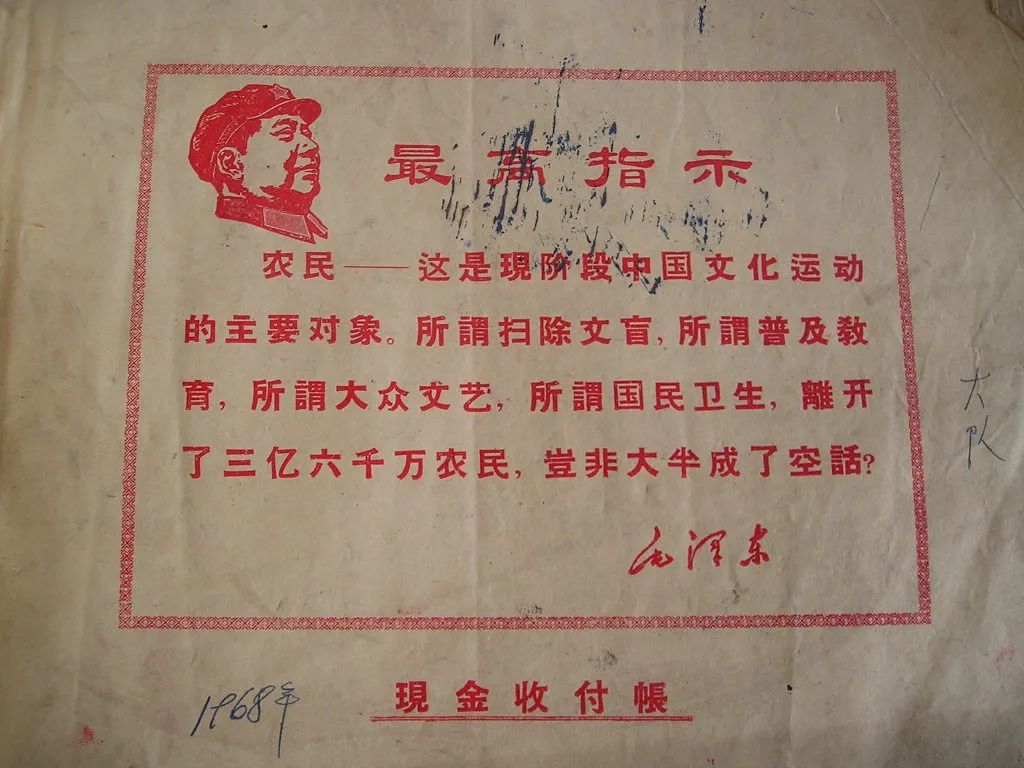 最高指示
农民——这是現阶段中国文化运动
的主要对象。所謂扫除文盲，所謂普及敎
育，所謂大众文艺，所謂国民卫生，離开
了三亿六千万农民，豈非大半成了空話？
毛泽东
大队
1968年
現金收付帳